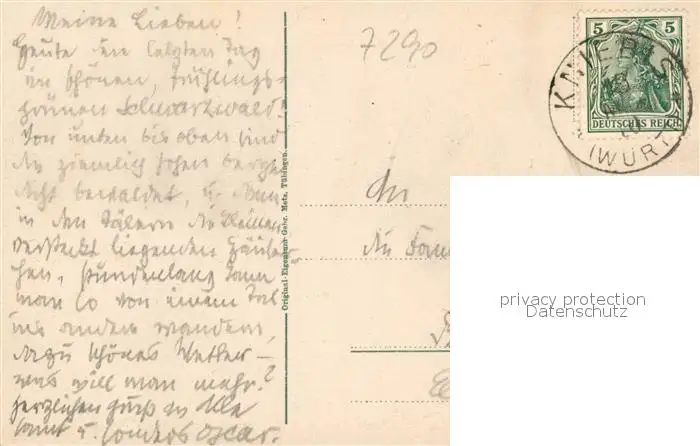 Meine Lieben!
Heute den letzten Tag
im schönen, frühlings-
grünen Schwarzwald.
Von unten bis oben sind
die ziemlich hohen Berge
dicht bewaldet, u. nun
in den Tälern die kleinen
versteckt liegenden Häus-
chen, stundenlang kann
man so von einem Tal
ins andere wandern,
dazu schönes Wetter –
was will man mehr?
Herzlichen Gruß an Alle
samt u. sonders Oscar.
Original-Eigentum Gebr. Metz, Tübingen.
7290
5 5
DEUTSCHES REICH
KNIEBIS
(WÜRT
An
die Fam
privacy protection
Datenschutz